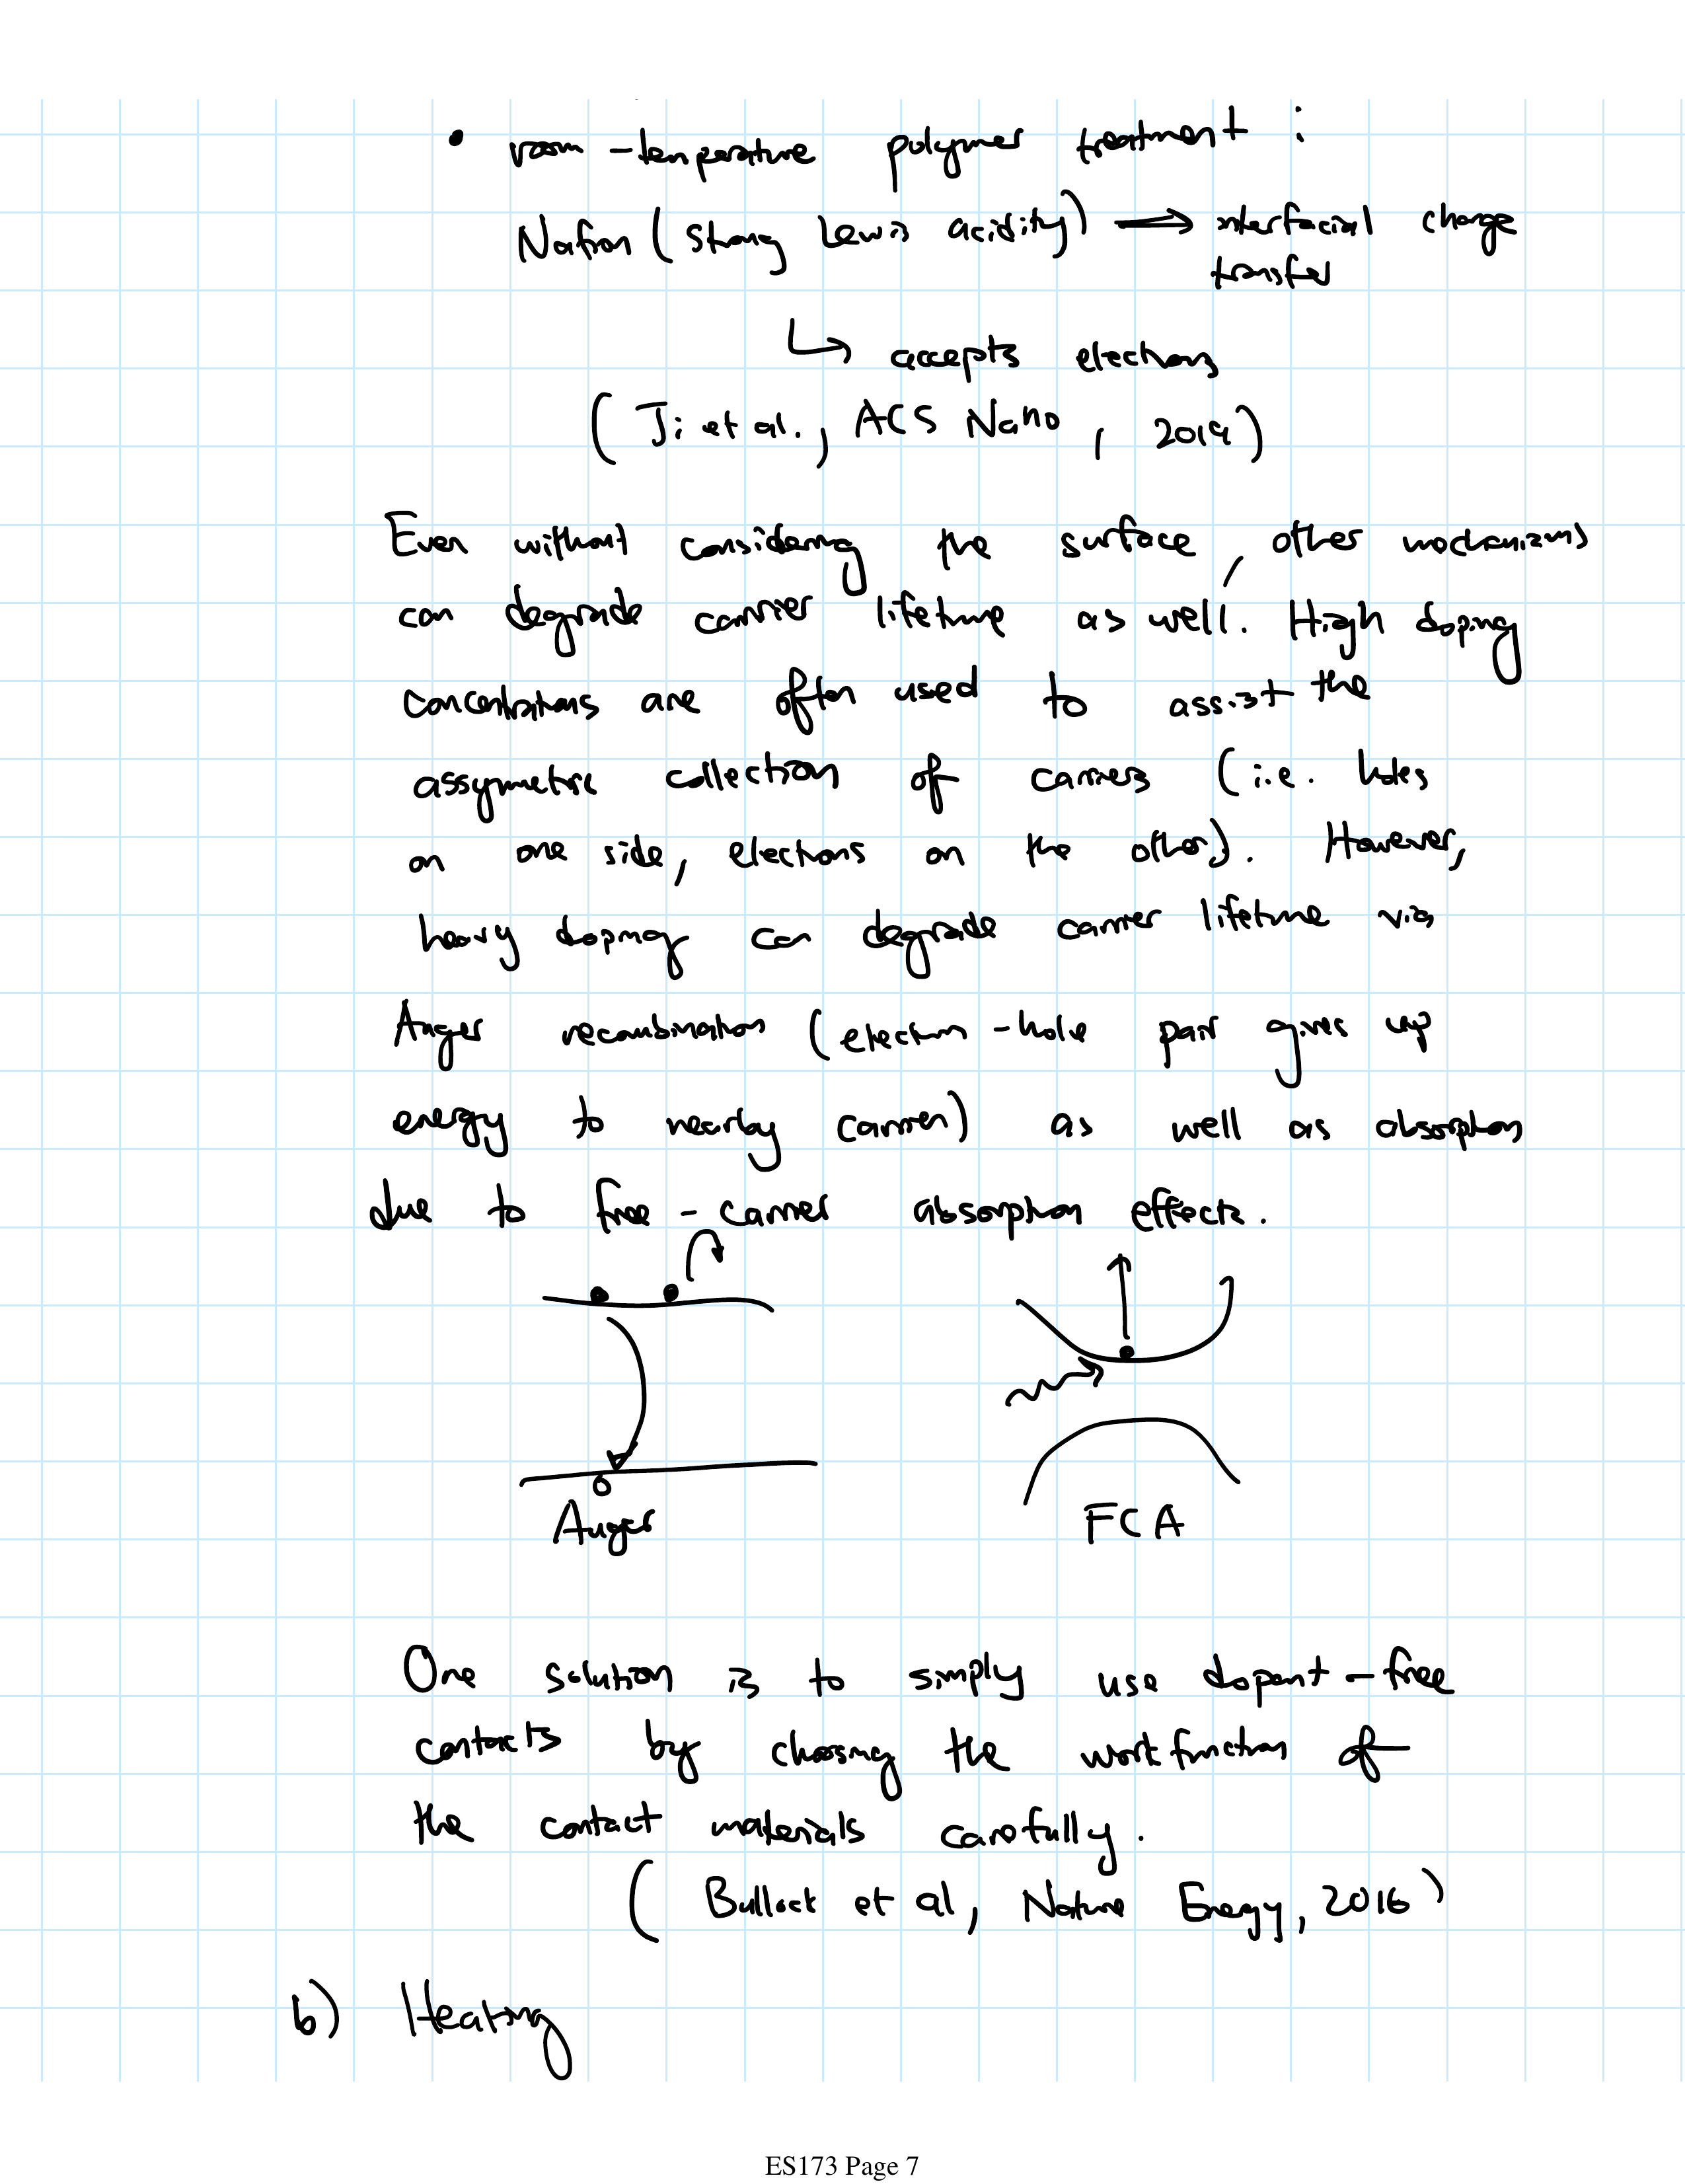 • room-temperature polymer treatment:
Nafion (strong Lewis acidity) → interfacial charge
transfer
↳ accepts electrons
(Ji et al., ACS Nano, 2019)
Even without considering the surface, other mechanisms
can degrade carrier lifetime as well. High doping
concentrations are often used to assist the
assymetric collection of carriers (i.e. holes
on one side, electrons on the other). However,
heavy doping can degrade carrier lifetime via
Auger recombination (electron-hole pair gives up
energy to nearby carrier) as well as absorption
due to free-carrier absorption effects.
Auger FCA
One solution is to simply use dopant-free
contacts by choosing the workfunction of
the contact materials carefully.
(Bullock et al, Nature Energy, 2016)
b) Heating
ES173 Page 7